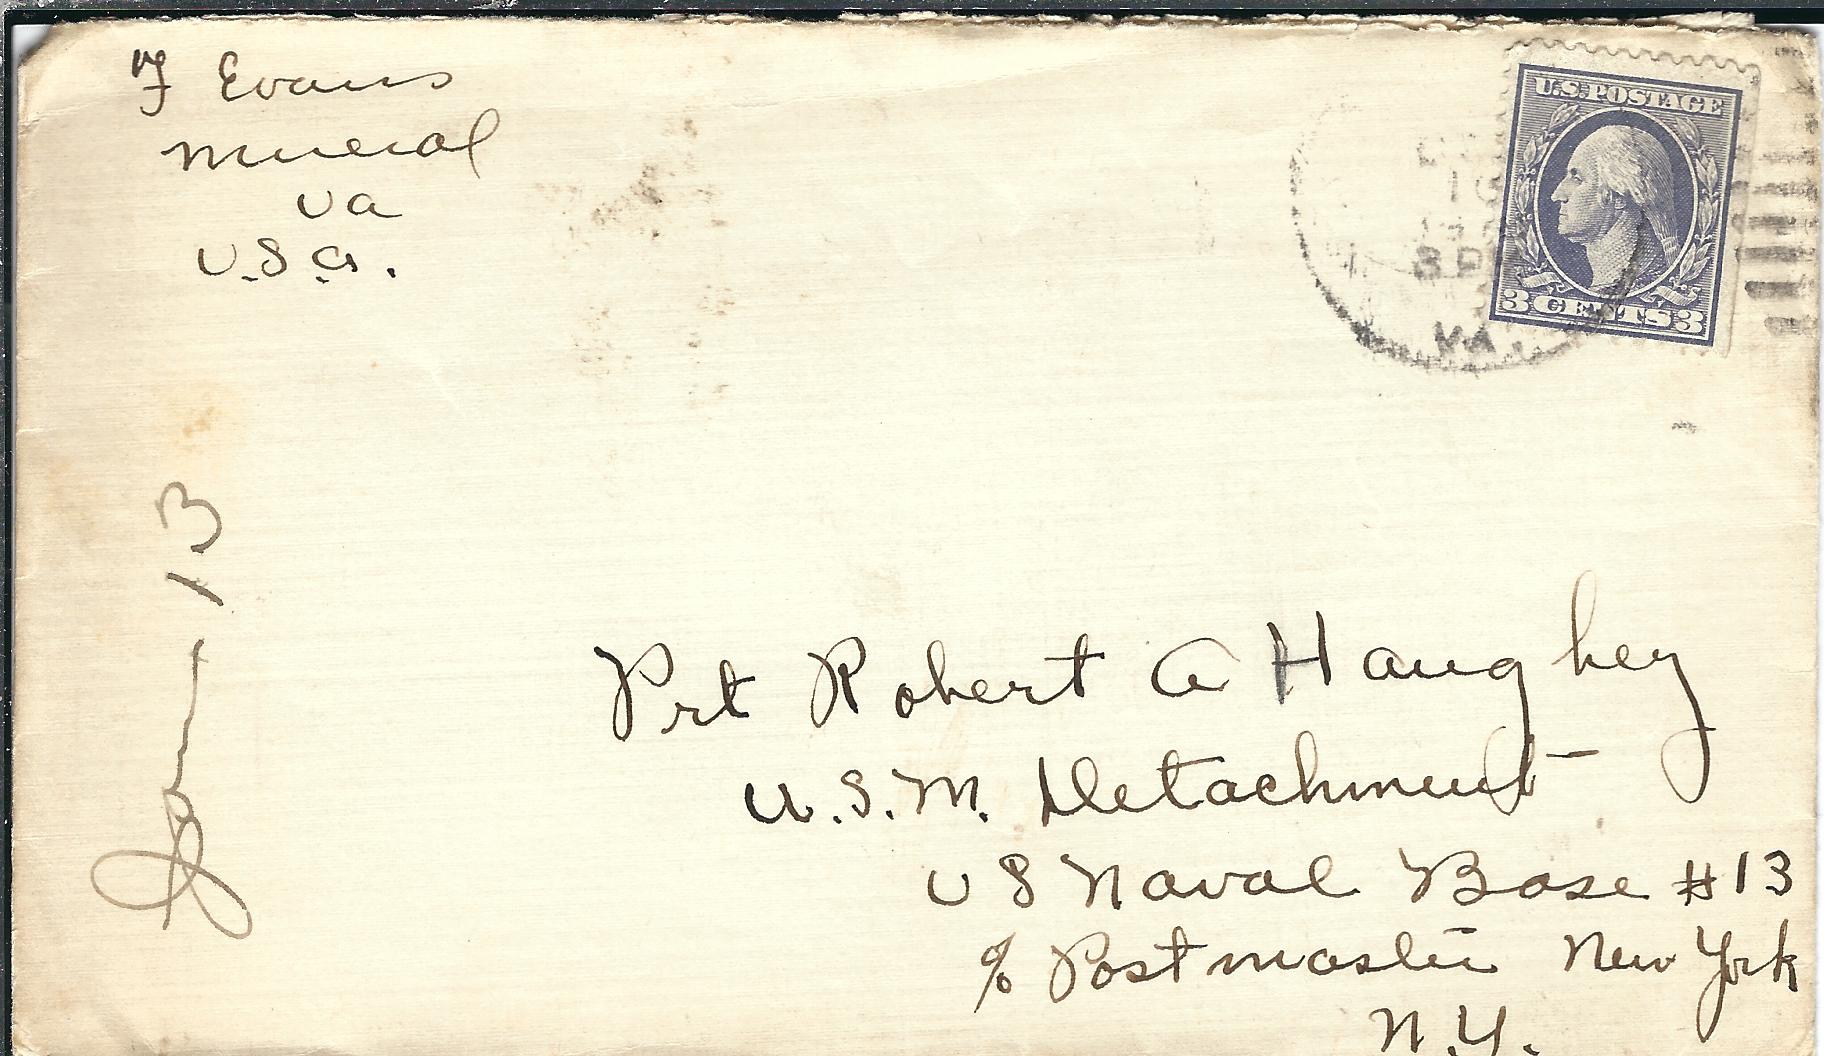 F Evans
Mineral
Va
U.S.a.
U.S. POSTAGE
3 CENTS 3
VA.
Jan - 13
Prt Robert A Haughey
U.S.M. Detachment
US Naval Base #13
c/o Postmaster New York
N.Y.